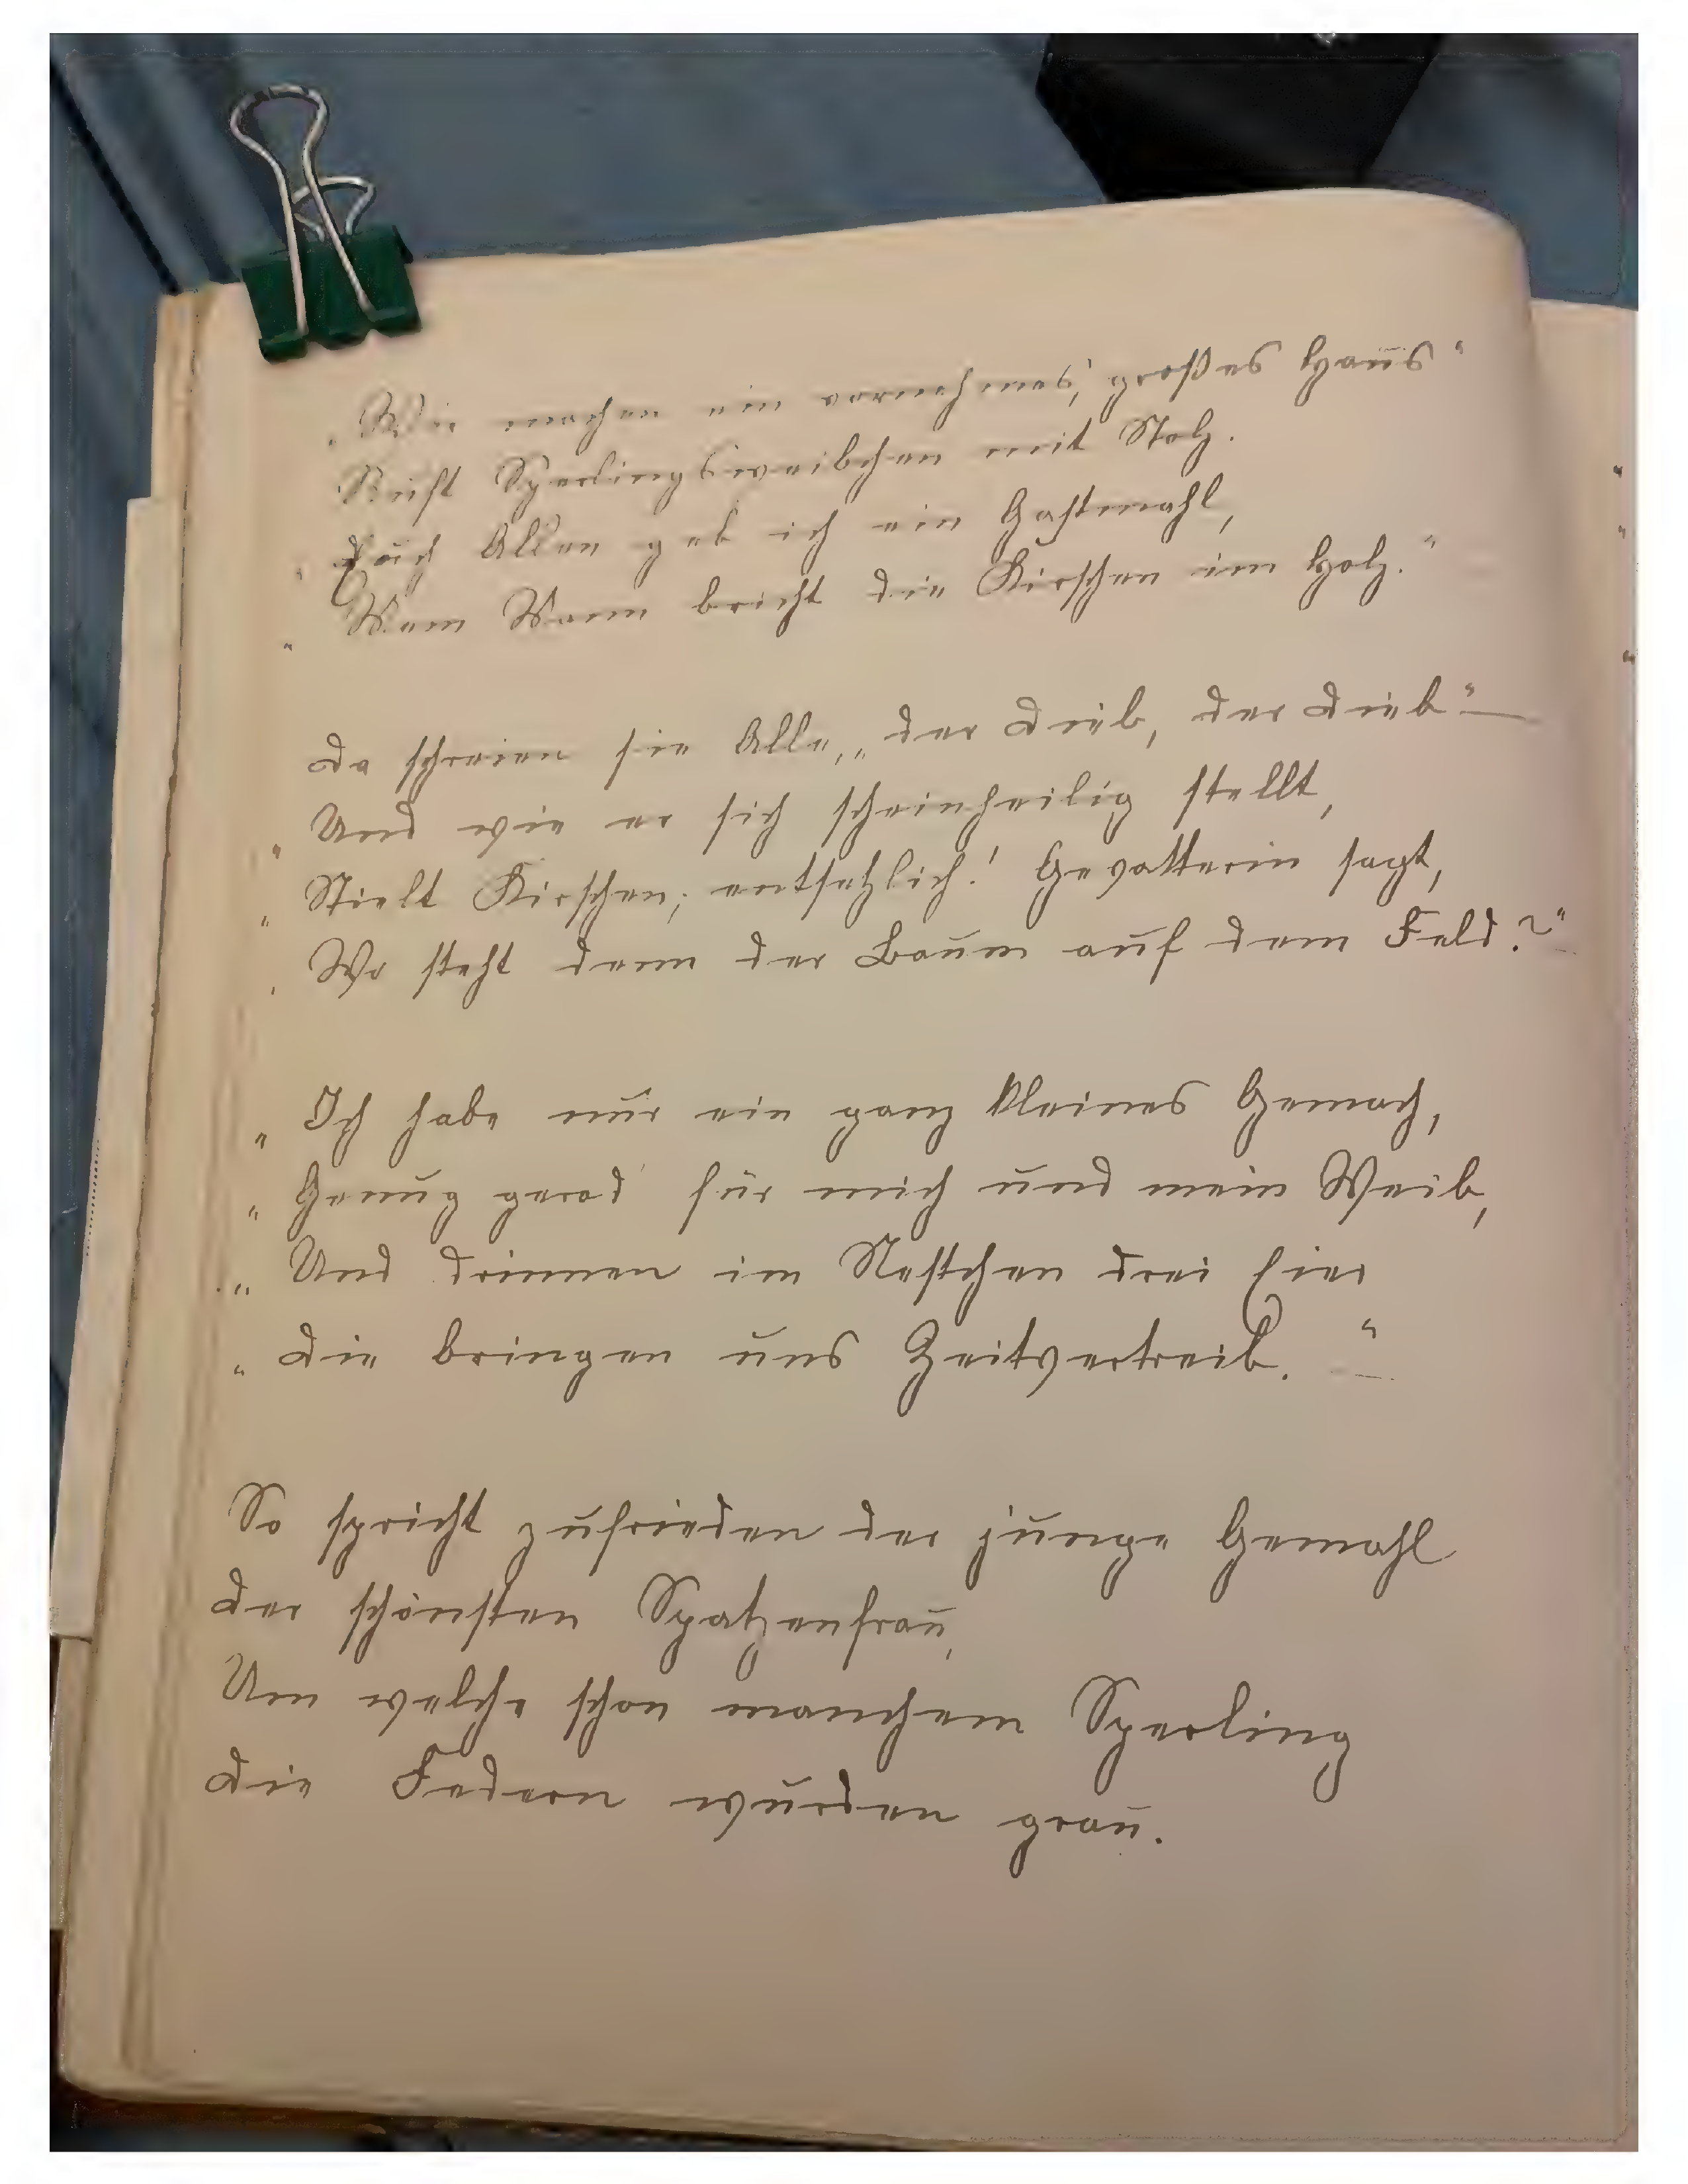 „Wir machen ein vornehmes, großes Haus“
Ruft Sperlingsweibchen mit Stolz.
„Euch Allen geb ich ein Gastmahl,
„Wem Wann bricht die Kirschen im Holz.“
Da schreien sie Alle, „der Dieb, der Dieb“ —
„Und wie er sich scheinheilig stellt,
„Stielt Kirschen; entsetzlich! Gevatterin sagt,
„Wo steht denn der Baum auf dem Feld?“ —
„Ich habe nur ein ganz kleines Gemach,
„Genug gerad' für mich und mein Weib,
„Und drinnen im Nestchen drei Eier
„Die bringen uns Zeitvertreib.“ —
So spricht zufrieden der junge Gemahl
Der schönsten Spatzenfrau,
Um welche schon manchem Sperling
Die Federn wurden grau.